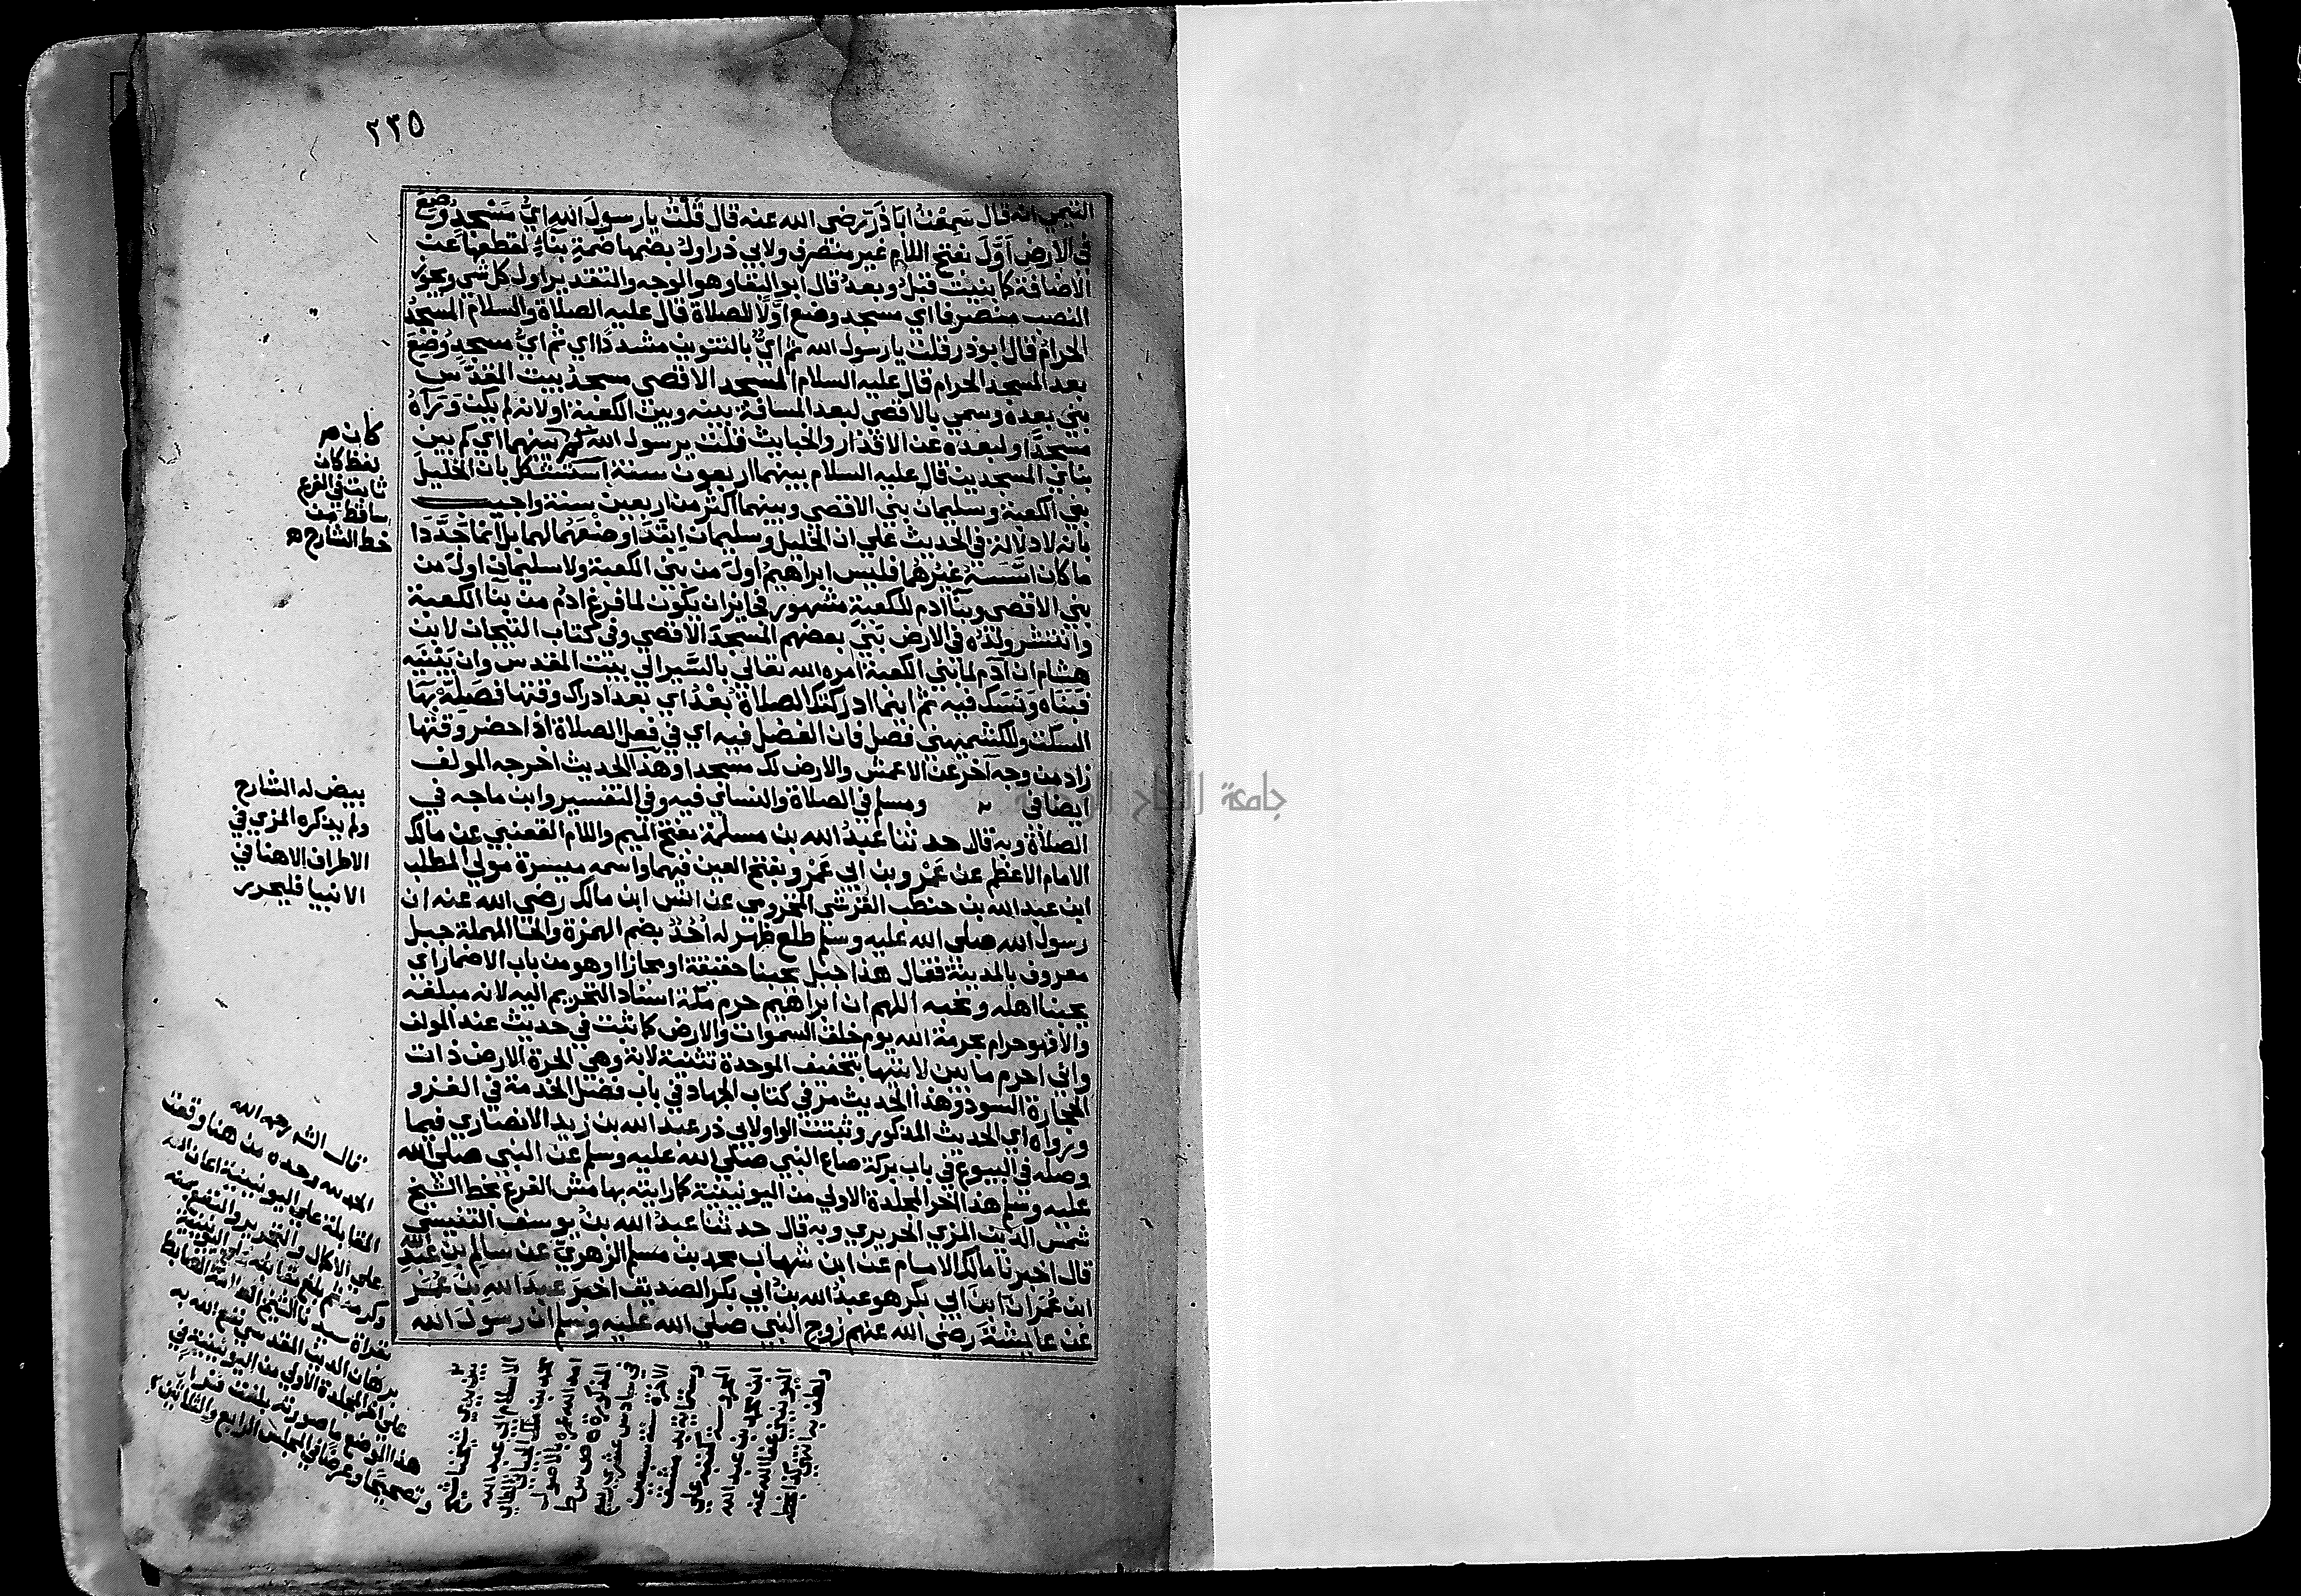 ٢٣٥
التيمي انه قال سَمِعْتُ ابا ذَرّ رضي الله عنه قال قُلْتُ يا رسولَ اللهِ ايُّ مَسْجِدٍ وُضِعَ
في الارضِ اَوَّلَ بفتح اللام غير منصرف ولابي ذر اولُ بضمها ضمة بناءٍ لقطعها عن
الاضافة كما بنيت قبلُ وبعدُ قال ابو البقا وهو الوجه والتقدير اول كل شي ويجوز
النصب منصرفا اي مسجد وضع اوَّلًا للصلاة قال عليه الصلاة والسلام المسجدُ
الحرامُ قال ابو ذر قلت يا رسول الله ثم ايٌّ بالتنوين مشددًا اي ثم ايُّ مسجدٍ وُضِعَ
بعد المسجد الحرام قال عليه السلام المسجد الاقصي مسجدُ بيت المقدس
بني بعده وسمي بالاقصي لبعد المسافة بينه وبين الكعبة او لانه لم يكن وَرَآهُ
مسجدًا ولبعده عن الاقذار والخبايث قلت يرسول الله كم بينهما اي كم بين
بناي المسجدين قال عليه السلام بينهما اربعون سنة استشكل بان الخليلَ
بني الكعبة وسليمان بني الاقصي وبينهما اكثر من اربعين سنة واجيب
بانه لا دلالة في الحديث علي ان الخليل وسليمان ابتدَا وضعَهُما لهما بل انما جَدَّدَا
ما كان اسَّسَهُ غيرُهما فليس ابراهيمُ اولَ من بني الكعبة ولا سليمان اولَ من
بني الاقصي وبنآ ادم للكعبة مشهور فجايز ان يكون لما فرغ ادمُ من بنآ الكعبة
وانتشر ولدُه في الارض بَنيَ بعضهم المسجدَ الاقصي وفي كتاب التيجان لابن
هشام ان آدم لما بني الكعبة امره الله تعالي بالسَّير الي بيت المقدس وان يَبْنيَه
فبَنَاه ونَسَك فيه ثم اينما ادركتك الصلاةُ بَعْدُ اي بعد ادراك وقتها فصَلِّهْ بهَا
السكت وللكشميهني فصل فان الفضل فيه اي في فعل الصلاة اذا حضر وقتها
زاد من وجه آخر عن الاعمش والارض لك مسجدا وهذا الحديث اخرجه المولف
ايضا في ومسلم في الصلاة والنسائي فيه وفي التفسير وابن ماجه في
الصلاة وبه قال حدثنا عبدُ الله بن مسلمة بفتح الميم واللام القعنبي عن مالك
الامام الاعظم عن عَمْرِو بن ابي عَمْرٍو بفتح العين فيهما واسمه ميسرة مولي المطلب
ابن عبد الله بن حنطب القرشي المخزومي عن انس ابن مالك رضي الله عنه ان
رسول الله صلي الله عليه وسلم طلع ظهر له اُحُدٌ بضم الهمزة والحا المهملة جبل
معروف بالمدينة فقال هذا جبل يحبنا حقيقة او مجازا وهو من باب الاضمار اي
يحبنا اهله ونحبه اللهم ان ابراهيم حرم مكة اسناد التحريم اليه لانه مبلغه
والا فهو حرام بحرمة الله يوم خلق السموات والارض كما ثبت في حديث عند المولف
واني احرم ما بين لابتيها بتخفيف الموحدة تثنية لابة وهي الحرة الارض ذات
الحجارة السود وهذا الحديث مرّ في كتاب الجهاد في باب فضل الخدمة في الغزو
ورواه اي الحديث المذكور وثبتت الواو لابي ذر عبد الله بن زيد الانصاري فيما
وصله في البيوع في باب بركة صاع النبي صلي الله عليه وسلم عن النبي صلي الله
عليه وسلم هذا اخر المجلدة الاولي من اليونينية كما رايته بهامش الفرع بخط الشيخ
شمس الدين المزي الحريري وبه قال حدثنا عبدُ الله بنُ يوسف التنيسي
قال اخبرنا مالك الامام عن ابن شهاب محمد بن مسلم الزهري عن سالمِ بنِ عبدِ الله
ابن عُمَر ان ابنَ ابي بكر هو عبدُ الله بنُ ابي بكر الصديق اخبَرَ عبدَ الله بنَ عُمَرَ
عن عايشةَ رضي الله عنهم زوجِ النبي صلي الله عليه وسلم ان رسولَ الله
كان ه
لفظ كان
ثابت في الفرع
ساقط من
خط الشارح ه
بيض له الشارح
ولم يذكره المزي في
الاطراف الا هنا في
الانبيا فليحرر
قال الش رحمه الله
الحمد لله وحده من هنا وقعت
المقابلة علي اليونينية اعان الله
علي الاكمال والتحرير والنفع بمنه
وكرمه ثم بلغ مقابلة علي اليونينية
بقراة سيدنا الشيخ العلامة الضابط
برهان الدين المقدسي نفع الله به
علي اخر المجلدة الاولي من اليونينية في
هذا الموضع ما صورته بلغت قراة
وتصحيحا وعرضا في المجلس الرابع والثلاثين
بين يدي شيخنا شيخ
الاسلام ابي عبد الله
محمد بن مالك الجياني الطائي
امد الله عمره بالاصول
المذكورة ص س ط
في سادس عشري ربيع
الاخر سنة سبعين
وستماية بدمشق
المحروسة كتبه علي
ابن محمد بن عبد الله
اليونيني عفا الله عنه
ولطف به انتهي كذا بخطه